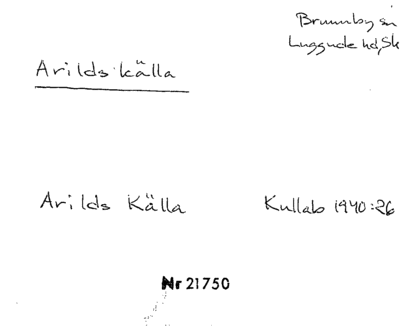 Brunnby sn
Luggude hd, Sk
Arilds källa
Arilds Källa Kullab 1940:26
Nr 21750